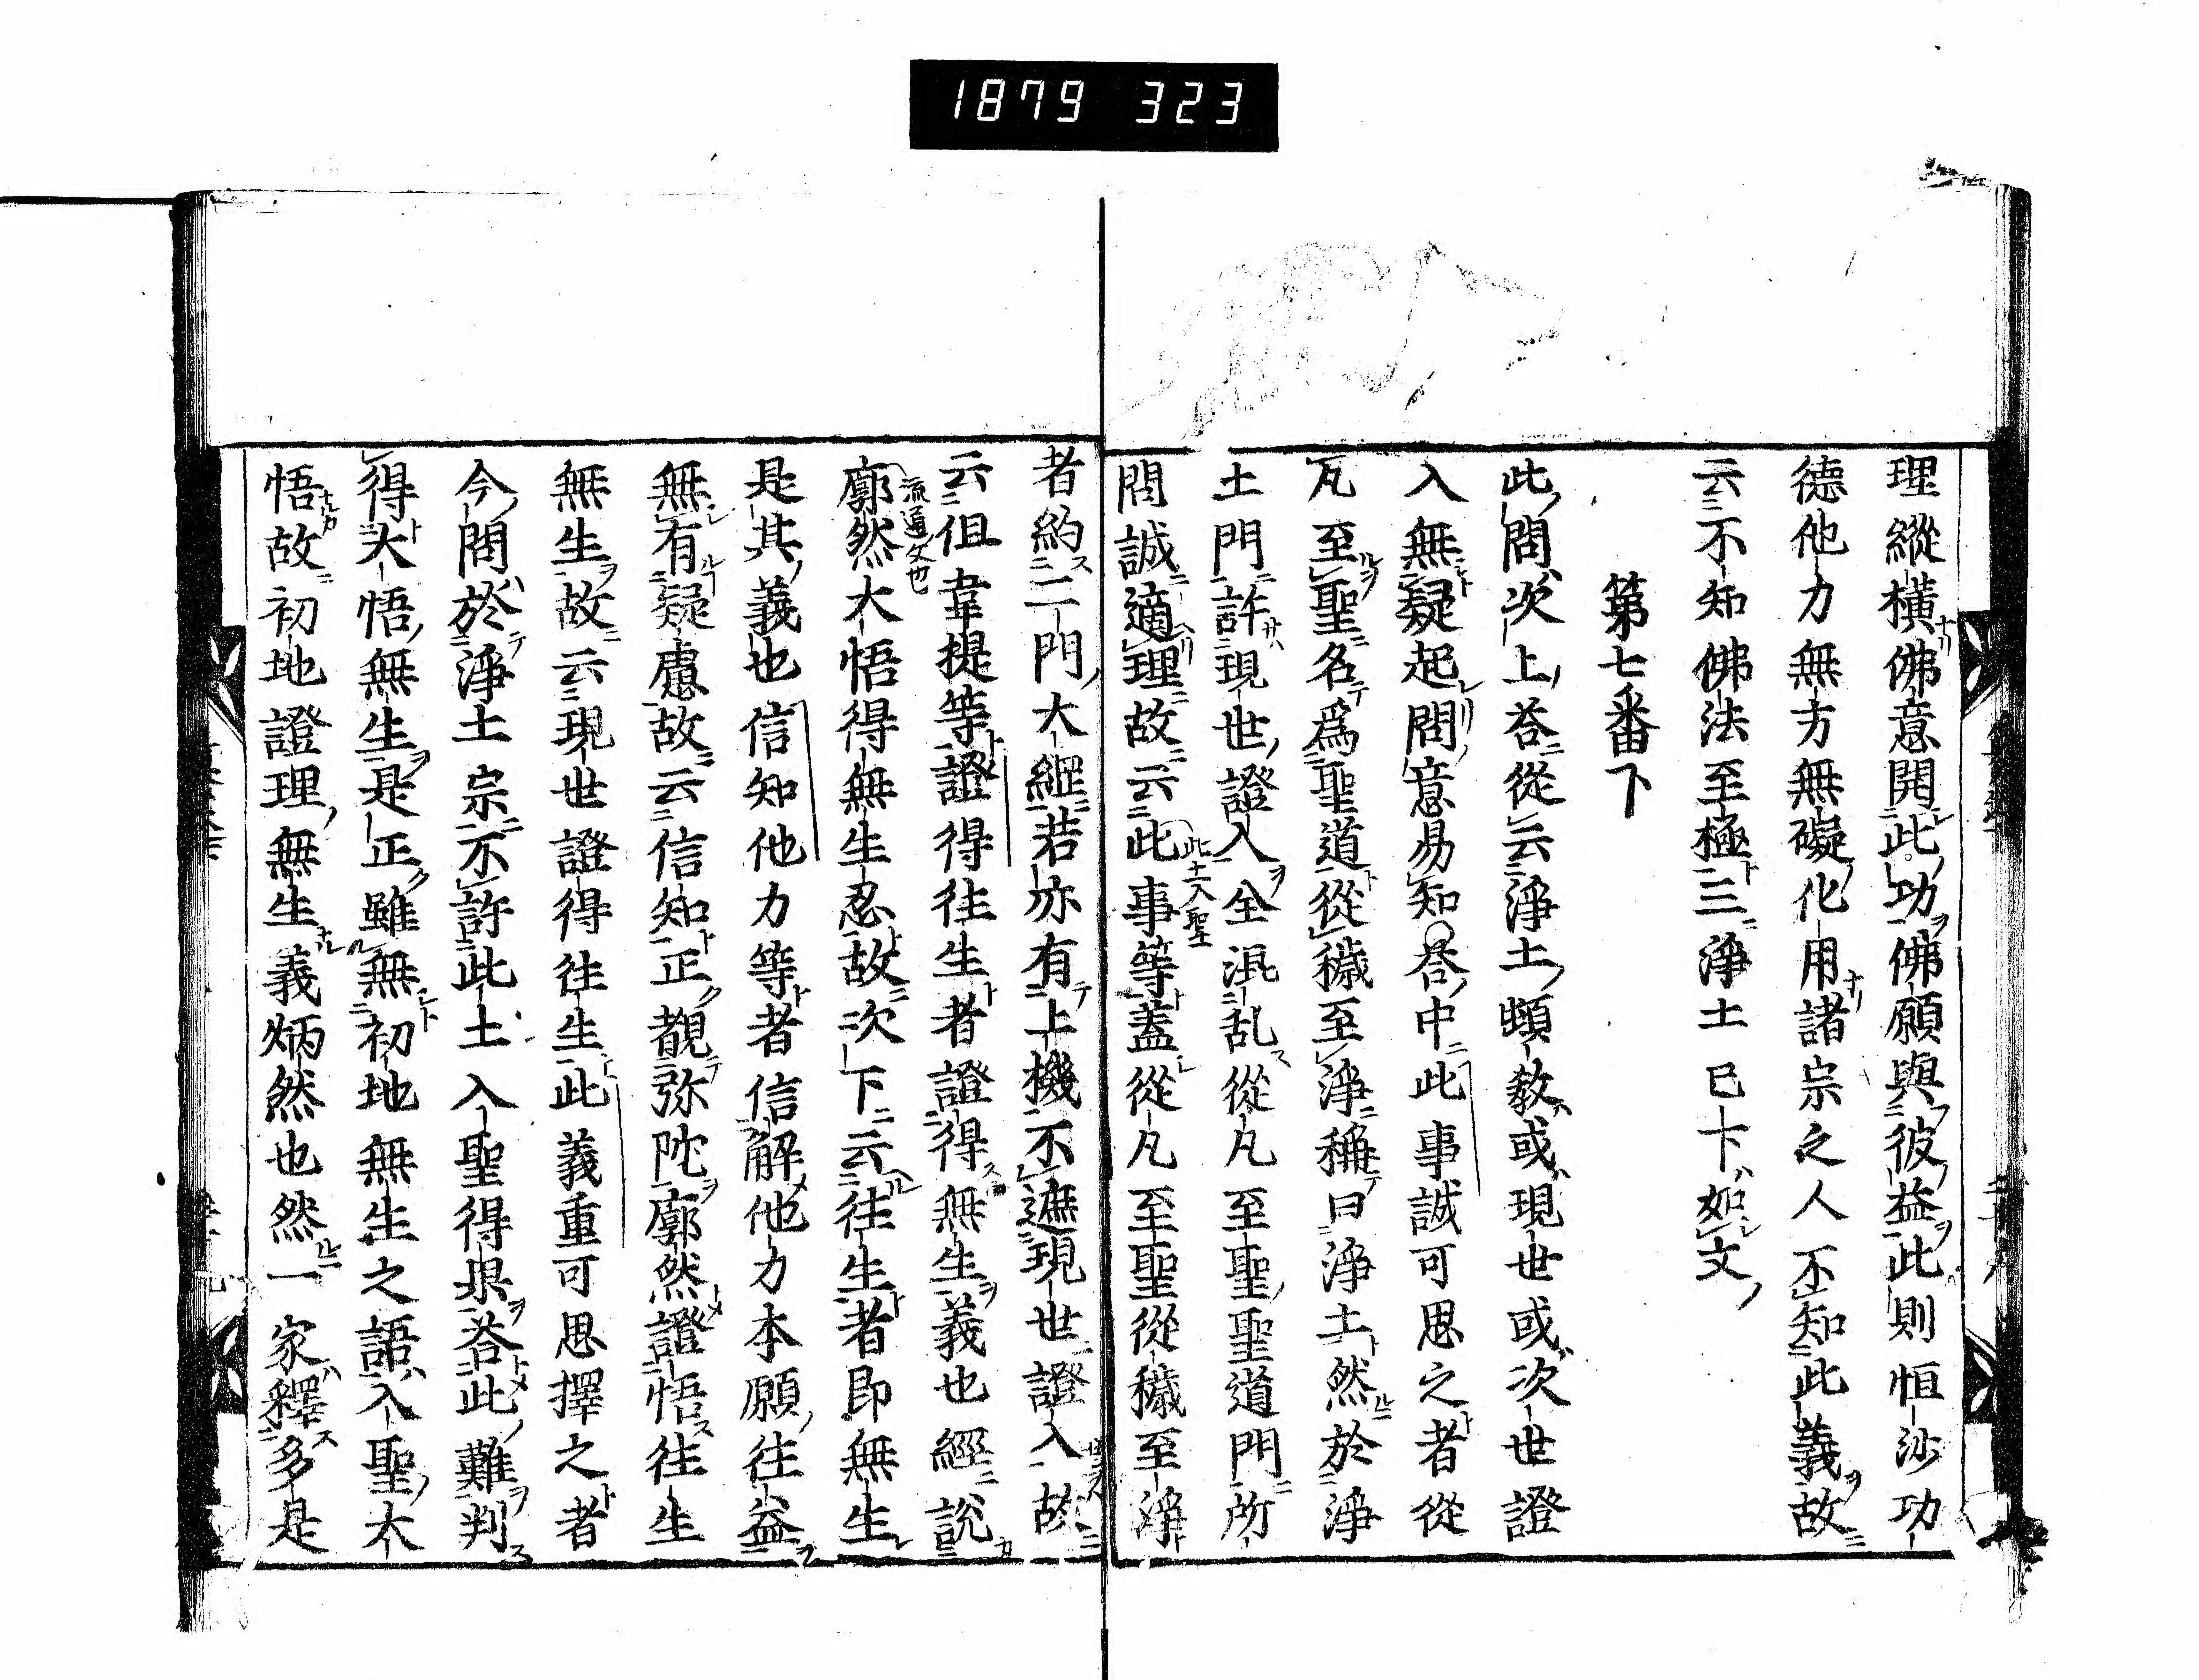 1879 323
理縱橫佛意開此功佛願與彼益此則恒沙功
德他力無方無礙化用諸宗之人不知此義故
云不知佛法至極三淨土已下如文
第七番下
此問次上荅從云淨土頓教或現世或次世證
入無疑起問意易知○荅中此事誠可思之者從
凡至聖名爲聖道從穢至淨稱曰淨土然於淨
土門許現世證入全混乱從凡至聖聖道門所
問誠適理故云此事等盖從凡至聖從穢至淨
此土入聖
者約二門大經若亦有上機不遮現世證入故
云但韋提等證得往生者證得無生義也經說
廓然大悟得無生忍故次下云往生者即無生
流通文也
是其義也信知他力等者信解他力本願往益
無有疑慮故云信知正覩弥陀廓然證悟往生
無生故云現世證得往生此義重可思擇之者
今問於淨土宗不許此土入聖得果荅此難判
得大悟無生是正雖無初地無生之語入聖大
悟故初地證理無生義炳然也然一家釋多是